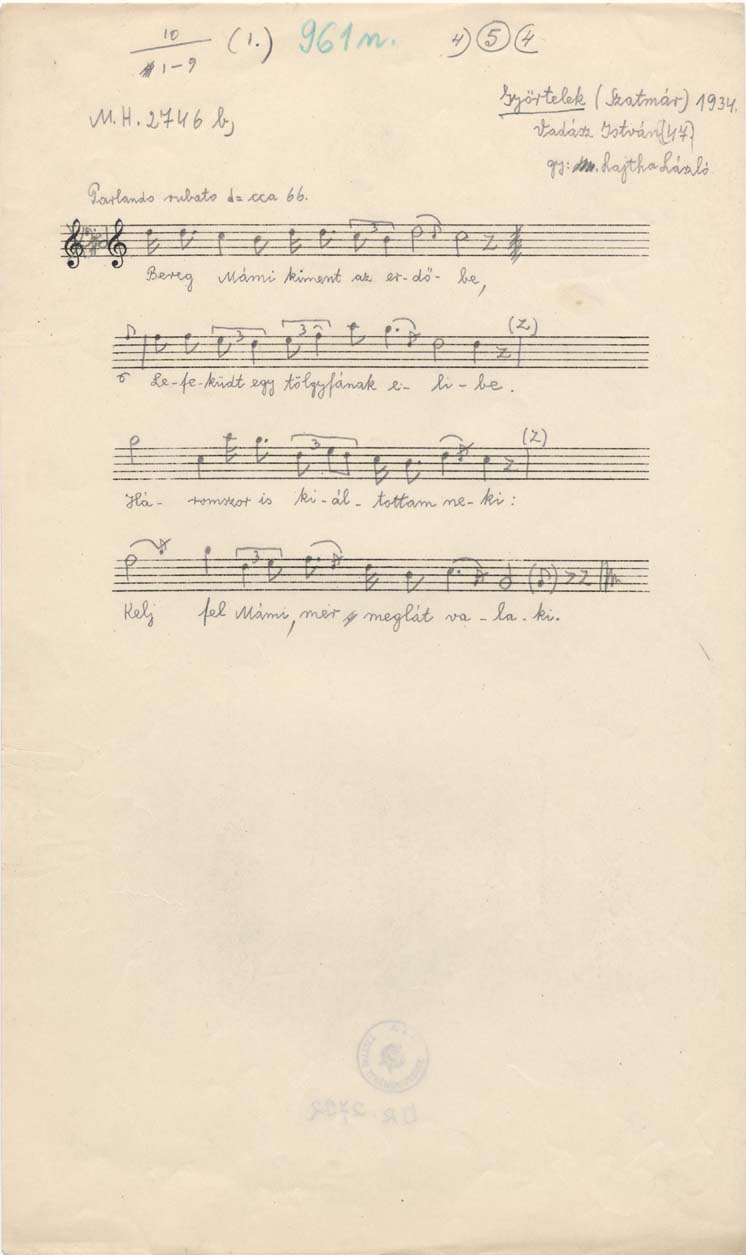 10 (1.) 961n. 4) 5 (4
1-9
Györtelek (Szatmár) 1934.
M.H. 2746 b)
Vadász István (47)
gy: Lajtha László
Parlando rubato = cca 66.
3
Bereg Mámi kiment az er-dő- be,
3 3 (Z)
6 Le-fe-küdt egy tölgyfának e- li-be.
3 (Z)
Há- romszor is ki-ál- tottam ne-ki:
3
Kelj fel Mámi, mer meglát va-la-ki.